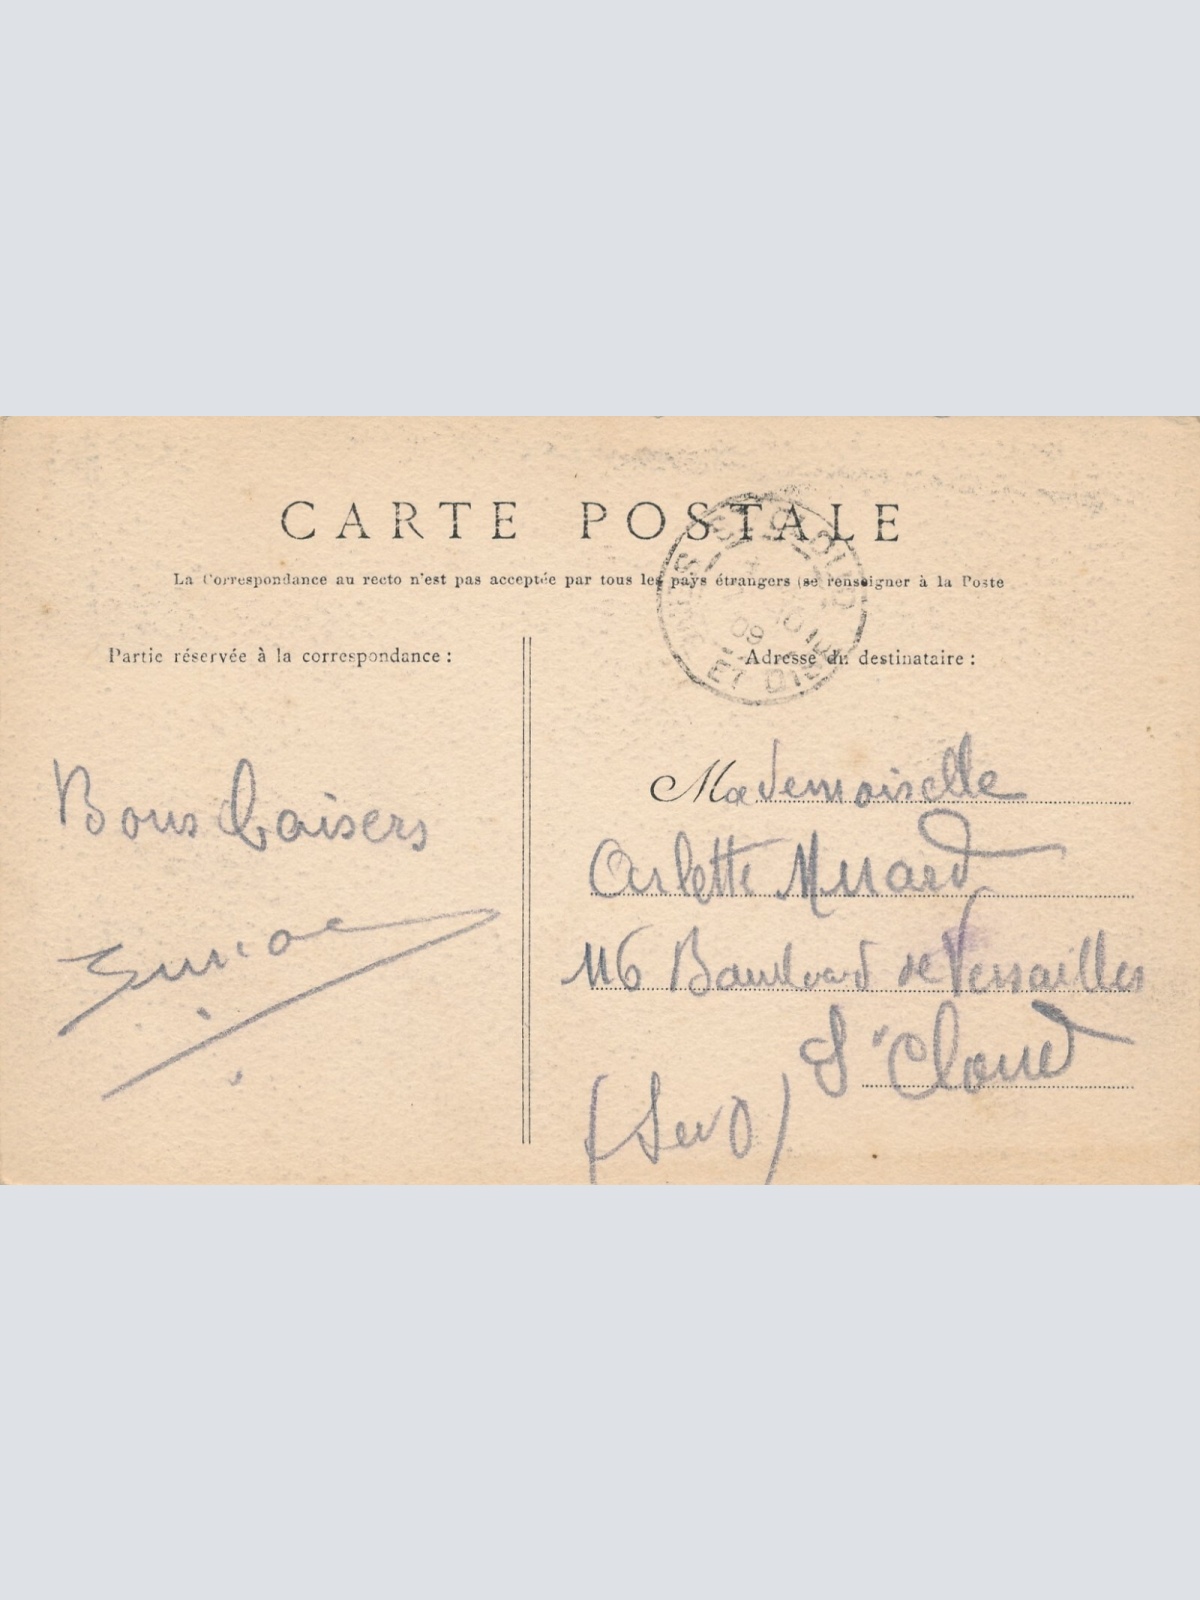 CARTE POSTALE
La Correspondance au recto n'est pas acceptée par tous les pays étrangers (se renseigner à la Poste
Partie réservée à la correspondance :
Adresse du destinataire :
Bons baisers
Mademoiselle
Arlette
116 de Versailles
St Cloud
(S et O)
ST CLOUD
10
09
ET OISE